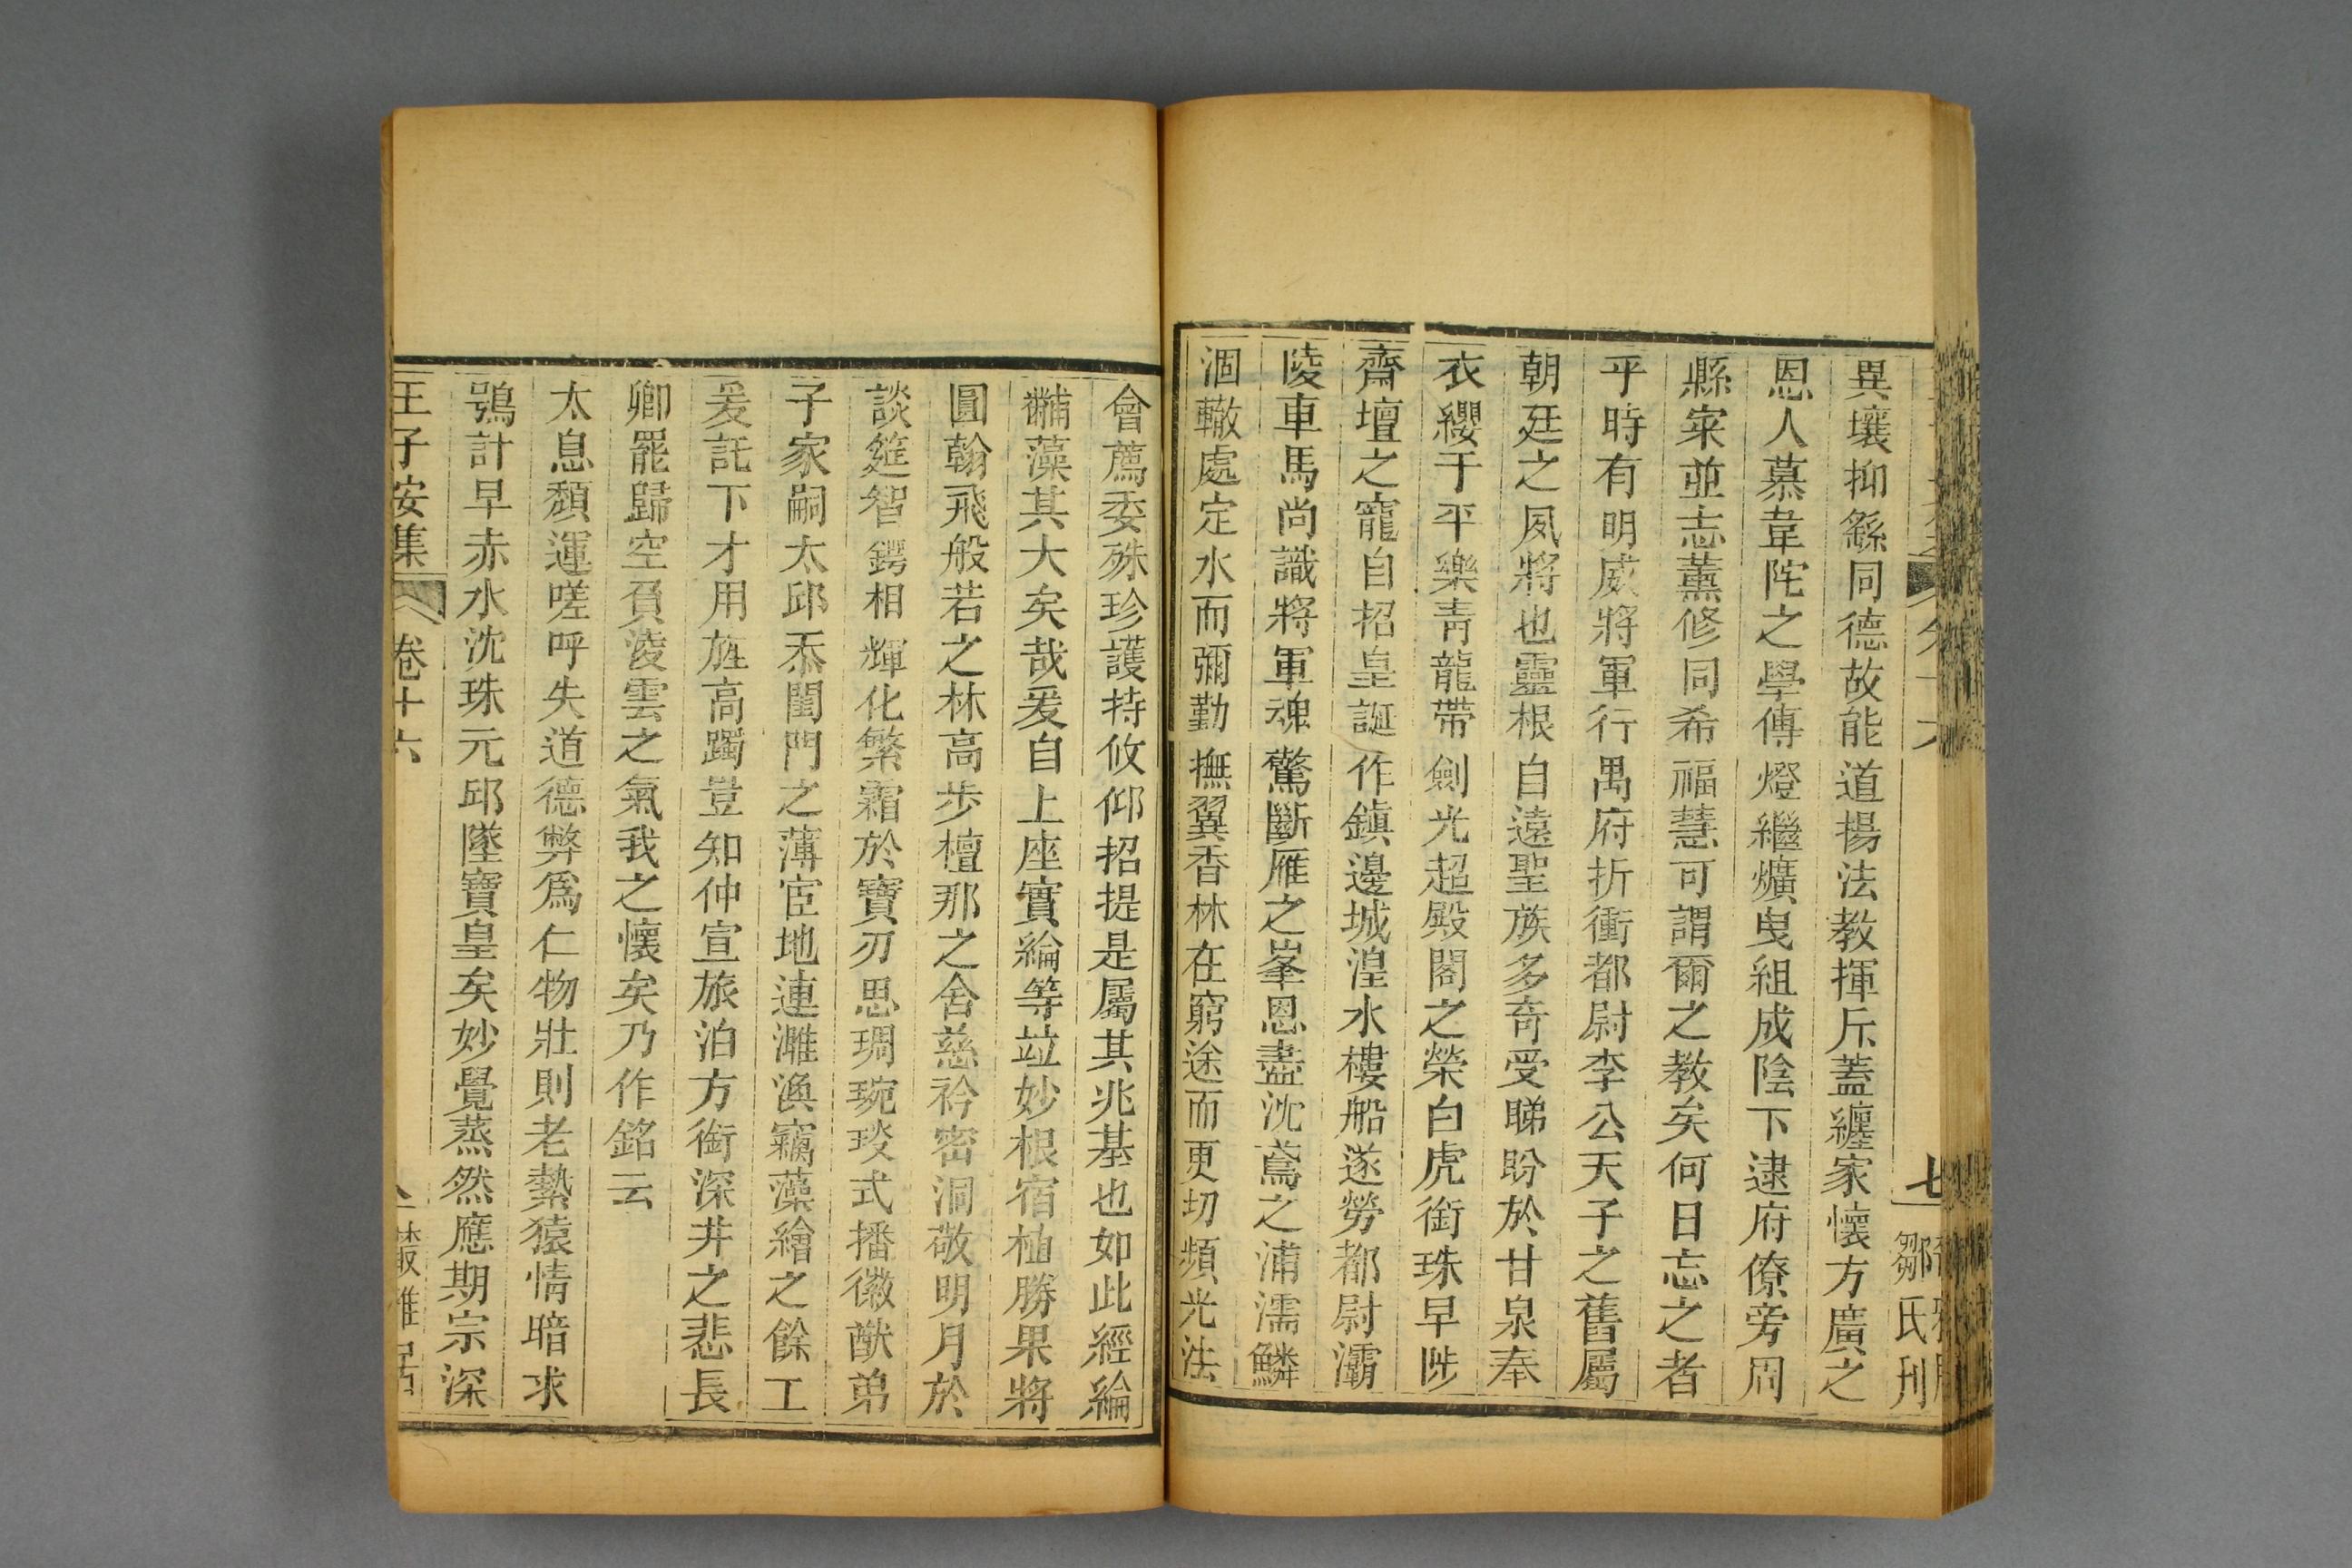 七 鄒氏刊
異壤抑繇同德故能道揚法教揮斥蓋纏家懷方廣之
恩人慕韋陀之學傳燈繼爌曳組成陰下逮府僚旁周
縣寀並志薰修同希福慧可謂爾之教矣何日忘之者
乎時有明威將軍行禺府折衝都尉李公天子之舊屬
朝廷之夙將也靈根自遠聖族多奇受睇盼於甘泉奉
衣纓于平樂靑龍帶劍光超殿閣之榮白虎銜珠早陟
齋壇之寵自招皇誕作鎭邊城湟水樓船遂勞都尉灞
陵車馬尚識將軍魂驚斷雁之峯恩盡沈鳶之浦濡鱗
涸轍處定水而彌勤撫翼香林在窮途而更切頻光法
會薦委殊珍護持攸仰招提是屬其兆基也如此經綸
黼藻其大矣哉爰自上座實綸等竝妙根宿植勝果將
圓翰飛般若之林高步檀那之舍慈衿密洞敬明月於
談筵智鍔相輝化繁霜於寶刃思琱琬琰式播徽猷弟
子家嗣太邱忝閨門之薄宦地連濉渙竊藻繪之餘工
爰託下才用旌高躅豈知仲宣旅泊方銜深井之悲長
卿罷歸空負淩雲之氣我之懷矣乃作銘云
太息頹運嗟呼失道德弊爲仁物壯則老縶猿情暗求
鴞計早赤水沈珠元邱墜寶皇矣妙覺蒸然應期宗深
王子安集 卷十六